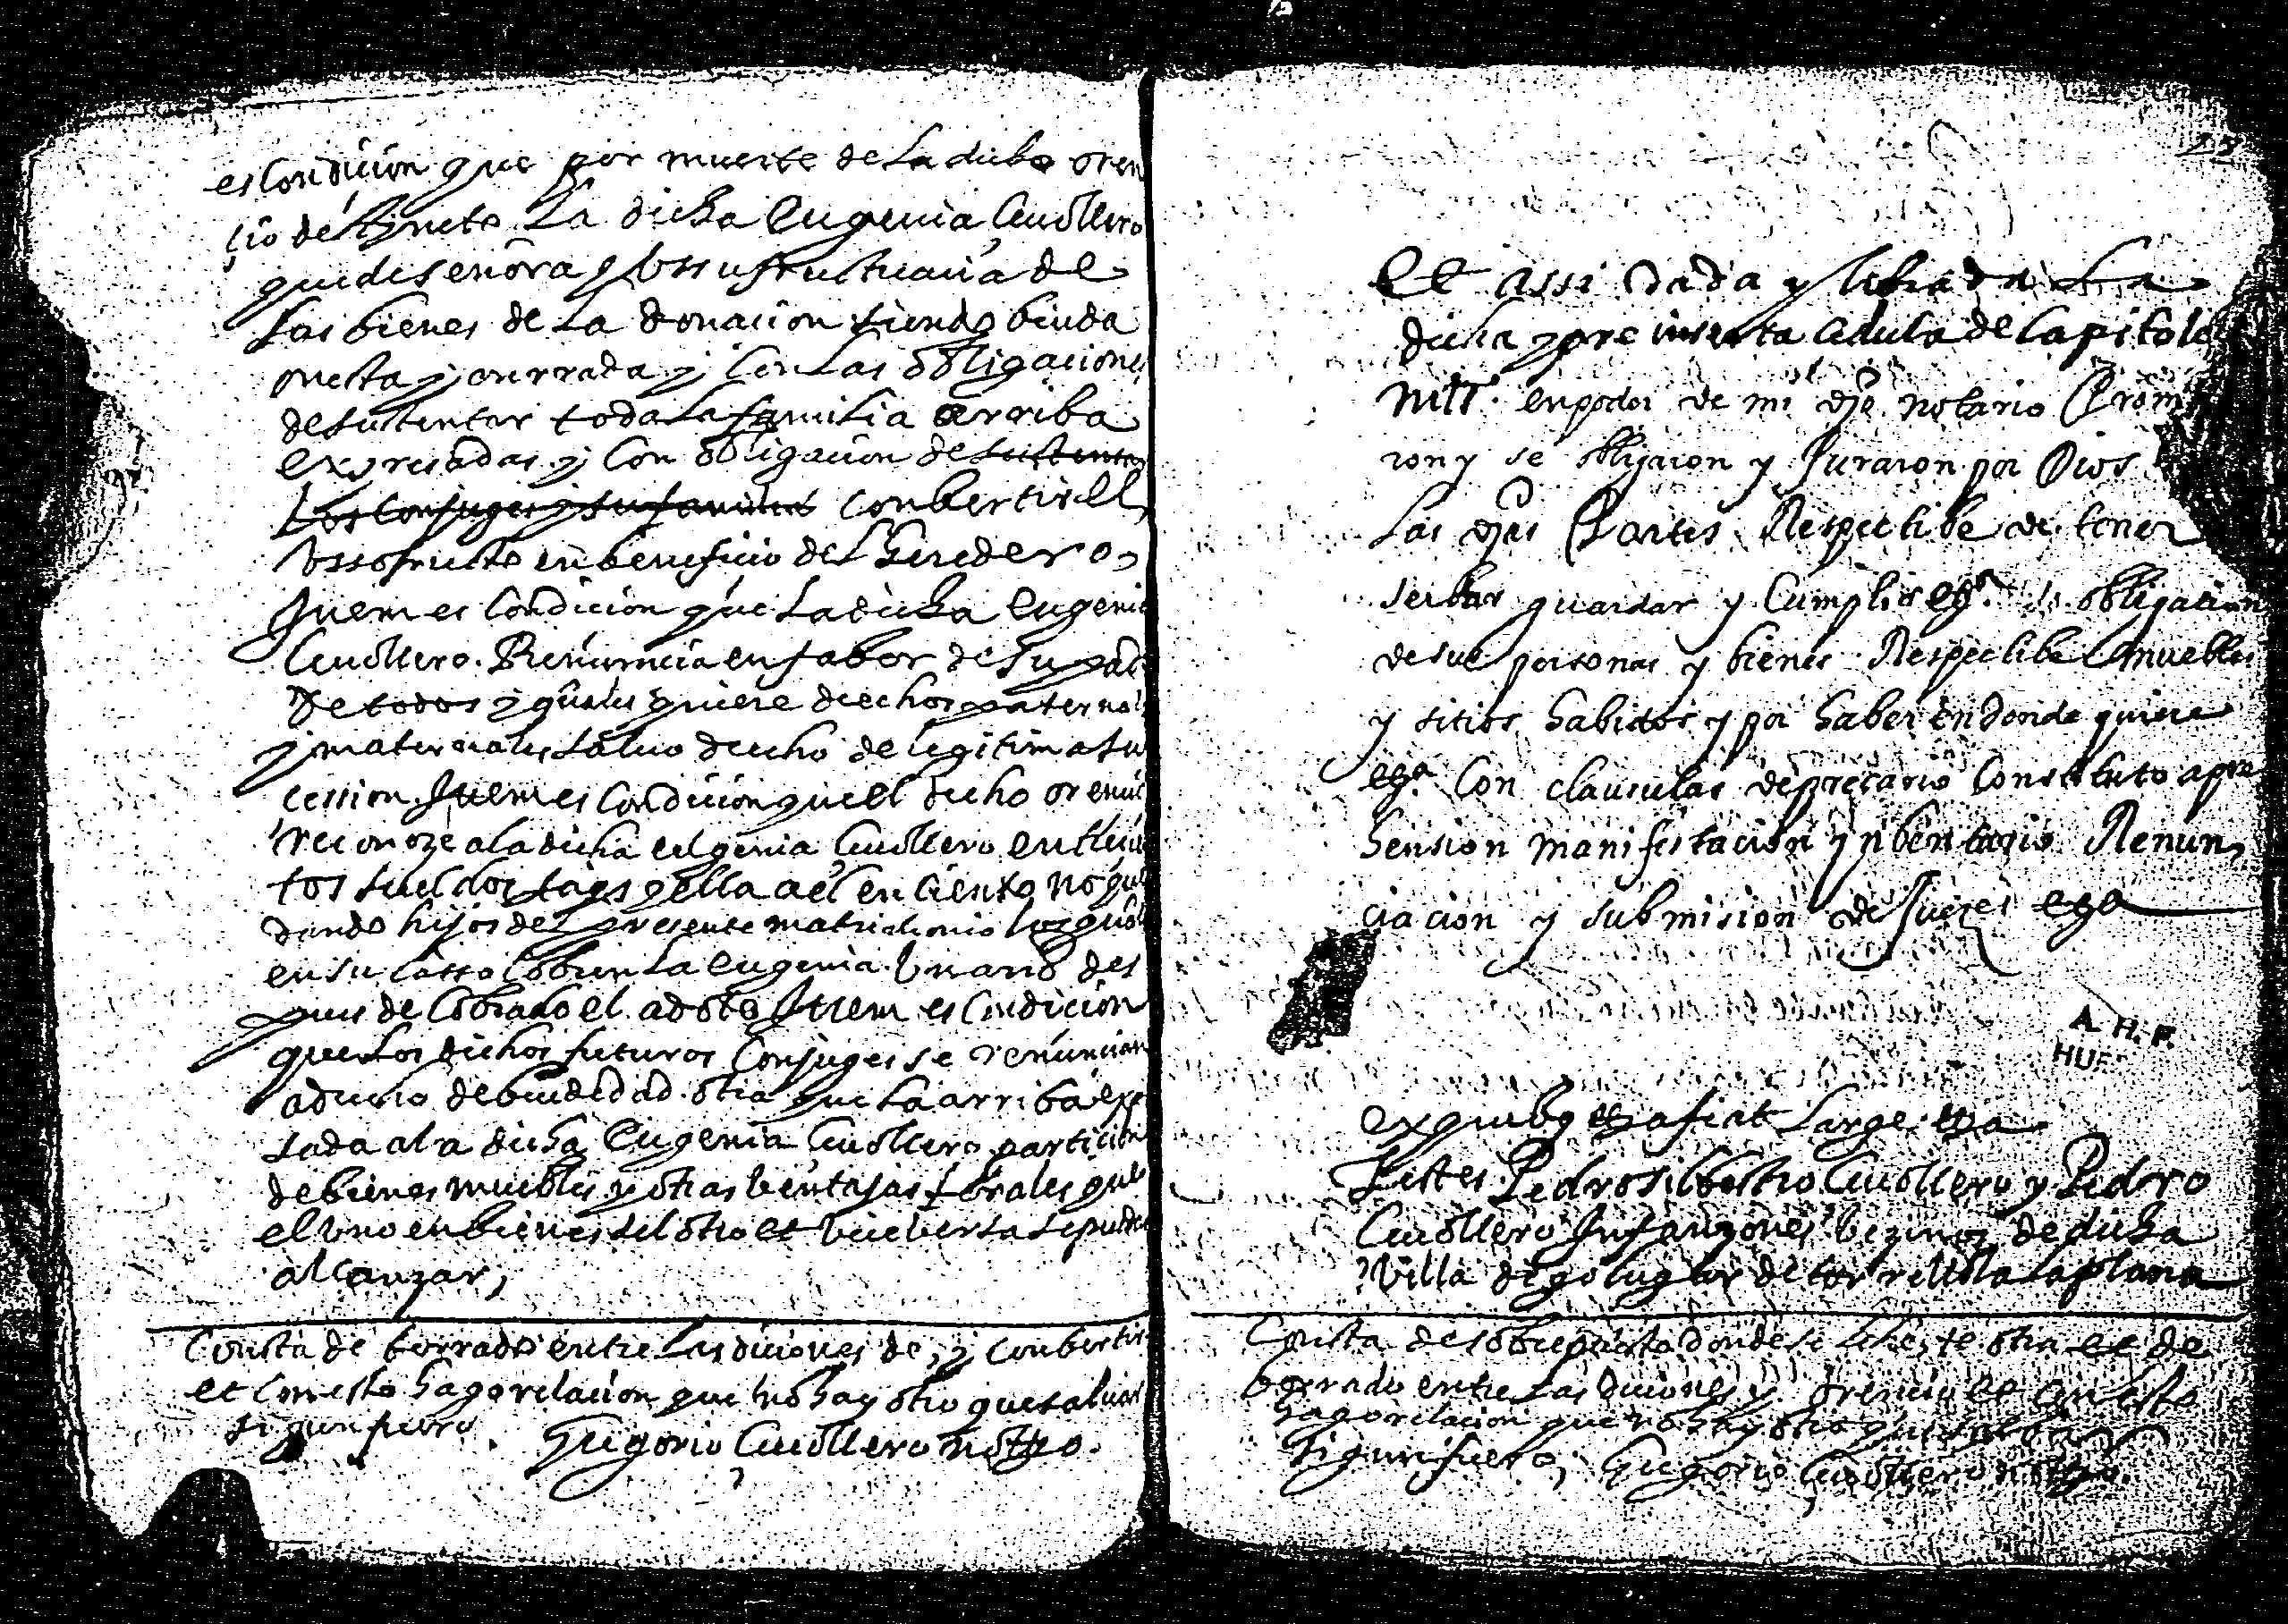 es Condicion que por muerte de la dicho oren
çio de la dicha Eugenia Cuollero
quede señora y Ussufructuaria de
las bienes de la donacion siendo biuda
onesta y onrrada y Con las obligaciones
de sustentar toda la familia arriba
expresadas y Con obligacion de sustentar
los Conjuges y su familia conbertir el
Ussofructo en beneficio del heredero
Ytem es Condicion que la dicha Eugenia
Cuollero Renuncia en fabor de su padre
De todos y quales quiere drechos paternales
y maternales salvo drecho de legitima su
cession. Ytem es Condicion que el dicho orencio
reconoze a la dicha eugenia Cuollero en
tos sueldos jaqs y ella a el en ciento no que
dando hijos del presente matrimonio los quales
en su casso Cobren la eugenia Un año des
pues de Cobrado el adote Ytem es Condicion
que los dichos futuros Conjuges se renuncian
a drecho de biudedad otra que la arriba expe
sada a la dicha Eugenia Cuollero particion
de bienes muebles y otras bentajas forales que
el uno en bienes del otro et vicebersa se puden
alcanzar,
Consta de borrado entre las diciones de, y conbertir
et Con esto hago relacion que no hay otro que salvar
sigun fuero. Gregorio Cuollero notto.
Et assi dada y librada La
dicha y pre inserta Cedula de Capitole
mtt. en poder de mi dho notario Prom
ron y se obligaron y Juraron por Dios
Las dhas Partes Respectibe de tener
serbar guardar y Cumplir etz.ª so obligacion
de sus personas y bienes Respectibe muebles
y sitios habidos y por haber en donde quiere
etz.ª Con clausulas de precario Constituto apre
hension manifestacion y nbentario Renun
ciacion y submision de Juezes etz.ª
A. H. P.
HUE
ex quibus etza fiat Large etza
Testes Pedro Silbestro Cuollero y Pedro
Cuollero Infanzones bezinos de dicha
Villa digo lugar de torrellola la plana
Consta de sobrepuesto donde se lehe, te otra et de
borrado entre las diciones y, orencio et Con esto
hago relacion que no hay otro que salbar
sigun fuero, Gregorio Cuollero notto.